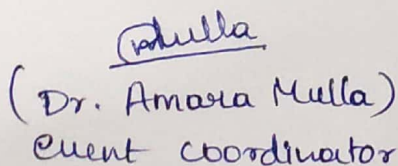 Mulla
(Dr. Amara Mulla)
Event coordinator